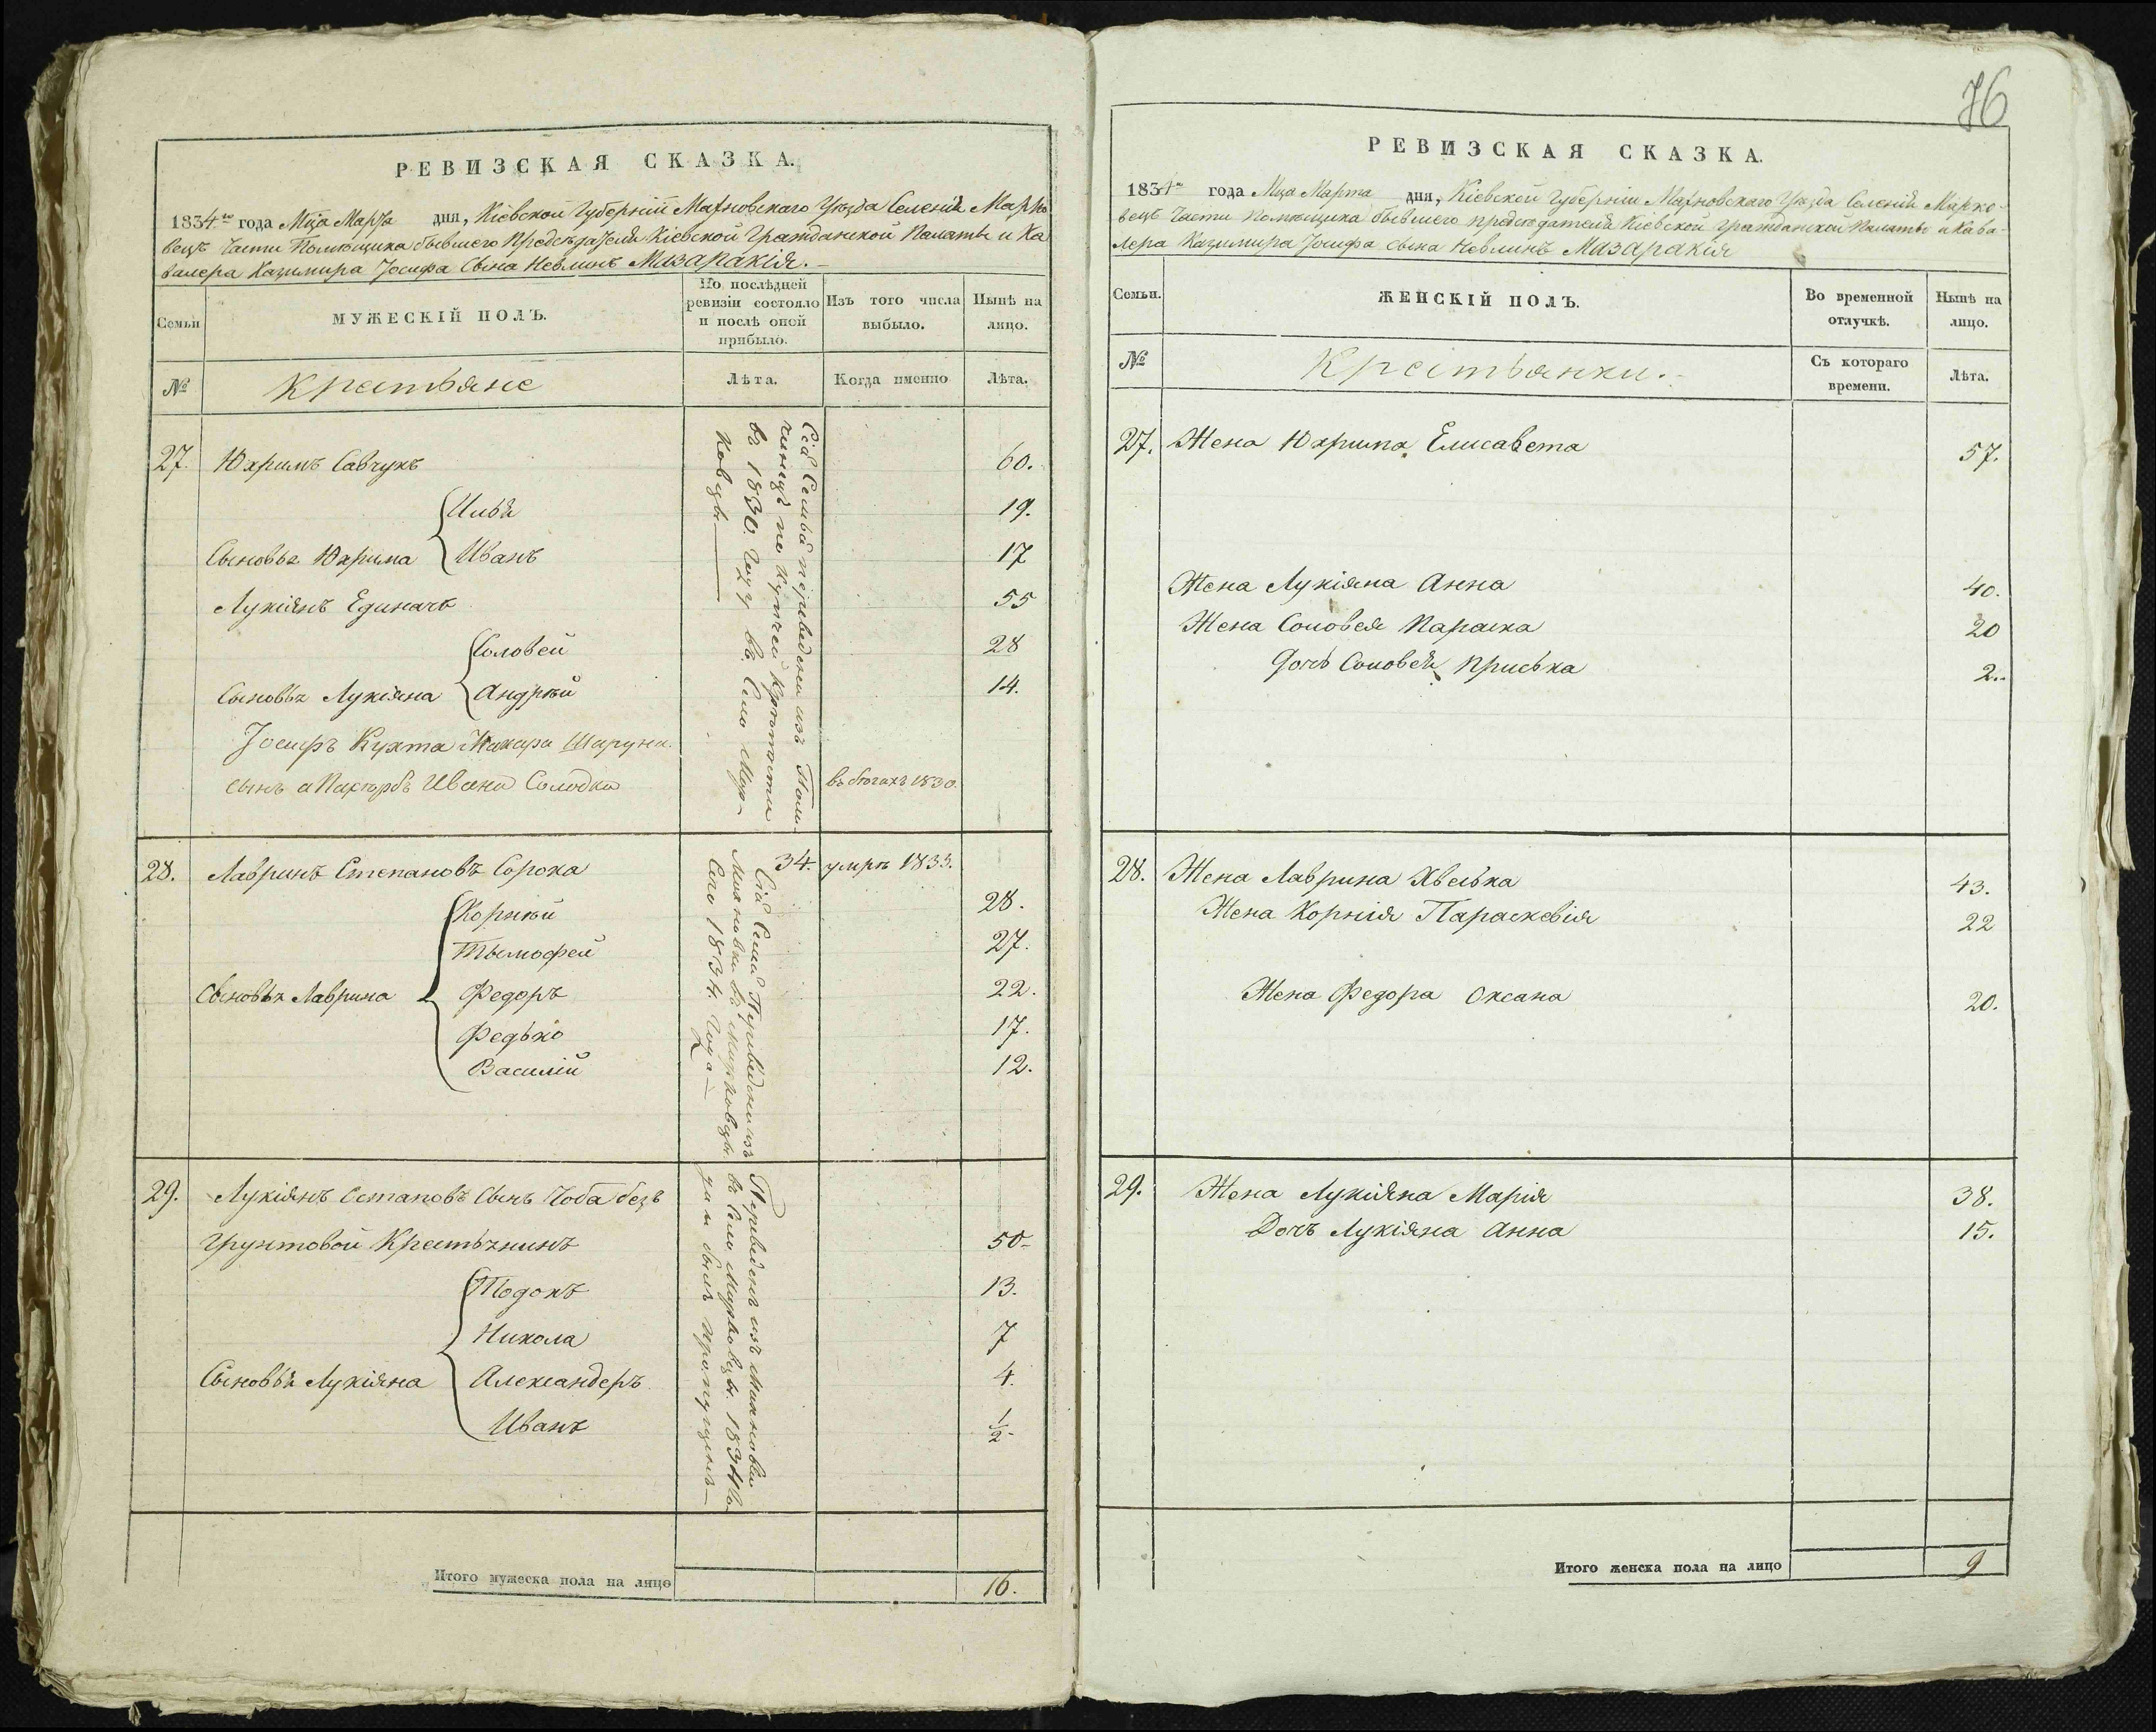 РЕВИЗСКАЯ СКАЗКА.
1834го года Мца Марта дня, Кіевской Губерніи Махновскаго Уѣзда Селенія Марко
вецъ Части Помѣщика бывшего Предсѣдателя Кіевской Гражданской Палаты и Ка
валера Казимира Іосифа Сына Невлинъ Мазаракія.
Семьи
МУЖЕСКІЙ ПОЛЪ.
По послѣдней ревизіи состояло и послѣ оной прибыло.
Изъ того числа выбыло.
Нынѣ на лицо.
№
Крестьяне
Лѣта.
Когда именно
Лѣта.
27. Юхримъ Савчукъ 60.
19.
Сыновья Юхрима Иванъ 17
Лукіянъ 55
Соловей 28
Сыновья Лукіяна Андрѣй 14.
Іосифъ Кухта
сынъ Ивана Солодка въ бѣгахъ 1830.
Сія Семья переведена изъ
по купчей крѣпости
въ 1830. году въ Село Мар-
ковцы
28. Лавринъ Степановъ Сорока 34. умръ 1833.
Корнѣй 28.
Тымофей 27.
Сыновья Лаврина Федоръ 22.
Федько 17.
Василій 12.
Сія Семья Переведена изъ
Махновки въ Марковцы
Сего 1834. года
29. Лукіянъ Остаповъ Сынъ Чоба безъ
грунтовой Крестьянинъ 50
Тодокъ 13.
Никола 7
Сыновья Лукіяна Александеръ 4.
Иванъ 1/2
Переведенъ изъ
въ Село Марковцы. 1834
былъ пропущенъ
Итого мужеска пола на лицо 16.
76
РЕВИЗСКАЯ СКАЗКА.
1834го года Мца Марта дня, Кіевской Губерніи Махновскаго Уѣзда Селенія Марко-
вецъ Части Помѣщика бывшего предсѣдателя Кіевской Гражданской Палаты и Кава-
лера Казимира Іосифа сына Невлинъ Мазаракія
Семьи.
ЖЕНСКІЙ ПОЛЪ.
Во временной отлучкѣ.
Нынѣ на лицо.
№
Крестьянки.
Съ котораго времени.
Лѣта.
27. Жена Юхрима Елисавета 57.
Жена Лукіяна Анна 40.
Жена Соловея Параска 20
Дочь Соловея Приська 2.
28. Жена Лаврина Хвеська 43.
Жена Корнія Параскевія 22
Жена Федора Оксана 20.
29. Жена Лукіяна Марія 38.
Дочъ Лукіяна Анна 15.
Итого женска пола на лицо 9